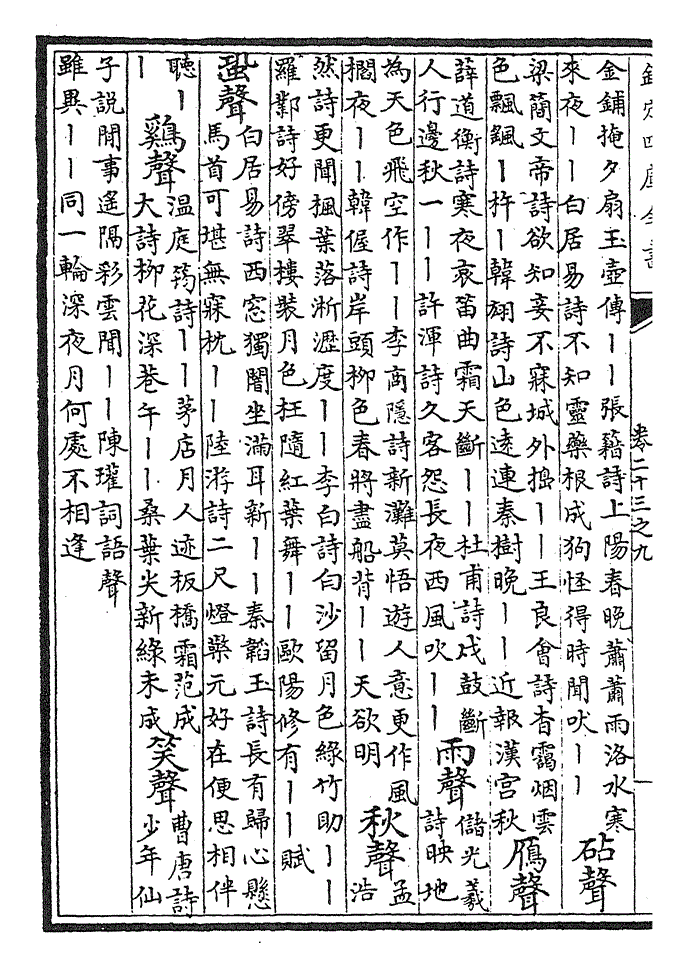 欽定四庫全書 卷二十三之九 一
金鋪掩夕扇玉壺傳丨丨張籍詩上陽春晚蕭蕭雨洛水寒
來夜丨丨白居易詩不知靈藥根成狗怪得時聞吠丨丨
砧聲
梁簡文帝詩欲知妾不寐城外擣丨丨王良會詩杳靄烟雲
色飄颻丨杵丨韓翃詩山色遠連秦樹晚丨丨近報漢宮秋
鴈聲
薛道衡詩寒夜哀笛曲霜天斷丨丨杜甫詩戍鼓斷
人行邊秋一丨丨許渾詩久客怨長夜西風吹丨丨
雨聲
儲光羲
詩映地
為天色飛空作丨丨李商隱詩新灘莫悟遊人意更作風
櫩夜丨丨韓偓詩岸頭柳色春將盡船背丨丨天欲明
秋聲
孟
浩
然詩更聞楓葉落淅瀝度丨丨李白詩白沙留月色綠竹助丨丨
羅鄴詩好傍翠樓裝月色枉隨紅葉舞丨丨歐陽修有丨丨賦
蛩聲
白居易詩西窓獨闇坐滿耳新丨丨秦韜玉詩長有歸心懸
馬首可堪無寐枕丨丨陸游詩二尺燈檠元好在便思相伴
聽丨
丨
雞聲
温庭筠詩丨丨茅店月人迹板橋霜范成
大詩柳花深巷午丨丨桑葉尖新綠未成
笑聲
曹唐詩
少年仙
子說閒事遙隔彩雲聞丨丨陳瓘詞語聲
雖異丨丨同一輪深夜月何處不相逢